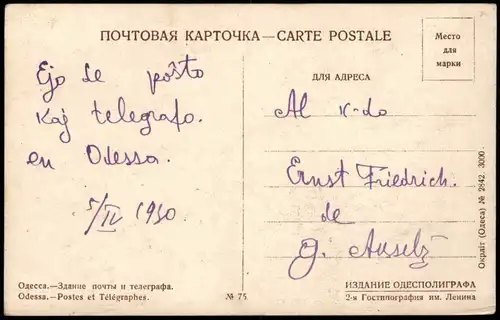 ПОЧТОВАЯ КАРТОЧКА—CARTE POSTALE
Место
для
марки
Ejo de poŝto
kaj telegrafo.
en Odessa.
5/IV 1930
ДЛЯ АДРЕСА
Al k-do
Ernst Friedrich.
de
g.
Одесса.—Здание почты и телеграфа.
Odessa.—Postes et Télégraphes.
№ 75.
ИЗДАНИЕ ОДЕСПОЛИГРАФА
2-я Гостипография им. Ленина
Окрліт (Одеса) № 2842. 3000.